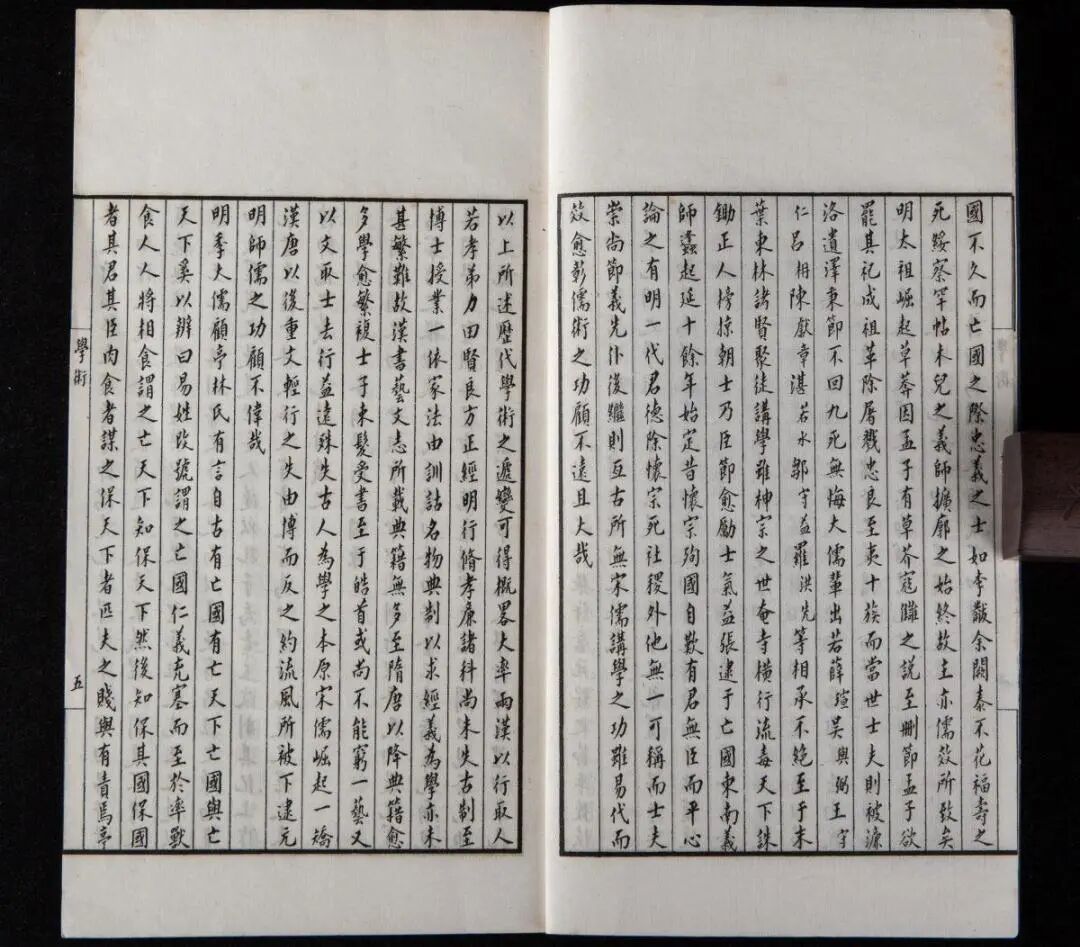 國不久而亡國之際忠義之士如李黻余闕泰不花福壽之
死綏察罕帖木兒之義師擴廓之始終故主亦儒效所致矣
明太祖崛起草莽因孟子有草芥寇讎之説至刪節孟子欲
罷其祀成祖革除屠戮忠良至夷十族而當世士夫則被濂
洛遺澤秉節不回九死無悔大儒輩出若薛瑄吳與弼王守
仁呂柟陳獻章湛若水鄒守益羅洪先等相承不絕至于末
葉東林諸賢聚徒講學雖神宗之世奄寺橫行流毒天下誅
鋤正人榜掠朝士乃臣節愈勵士氣益張逮于亡國東南義
師蠭起延十餘年始定昔懷宗殉國自歎有君無臣而平心
論之有明一代君德除懷宗死社稷外他無一可稱而士夫
崇尚節義先仆後繼則亙古所無宋儒講學之功雖易代而
效愈彰儒術之功顧不遠且大哉
以上所述歷代學術之遞變可得概畧大率兩漢以行取人
若孝弟力田賢良方正經明行脩孝廉諸科尚未失古制至
博士授業一依家法由訓詁名物典制以求經義為學亦未
甚繁難故漢書藝文志所載典籍無多至隋唐以降典籍愈
多學愈繁複士子束髮受書至于皓首或尚不能窮一藝又
以文取士去行益遠殊失古人為學之本原宋儒崛起一矯
漢唐以後重文輕行之失由博而反之約流風所被下逮元
明師儒之功顧不偉哉
明季大儒顧亭林氏有言自古有亡國有亡天下亡國與亡
天下奚以辨曰易姓改號謂之亡國仁義充塞而至於率獸
食人人將相食謂之亡天下知保天下然後知保其國保國
者其君其臣肉食者謀之保天下者匹夫之賤與有責焉亭
學術
五